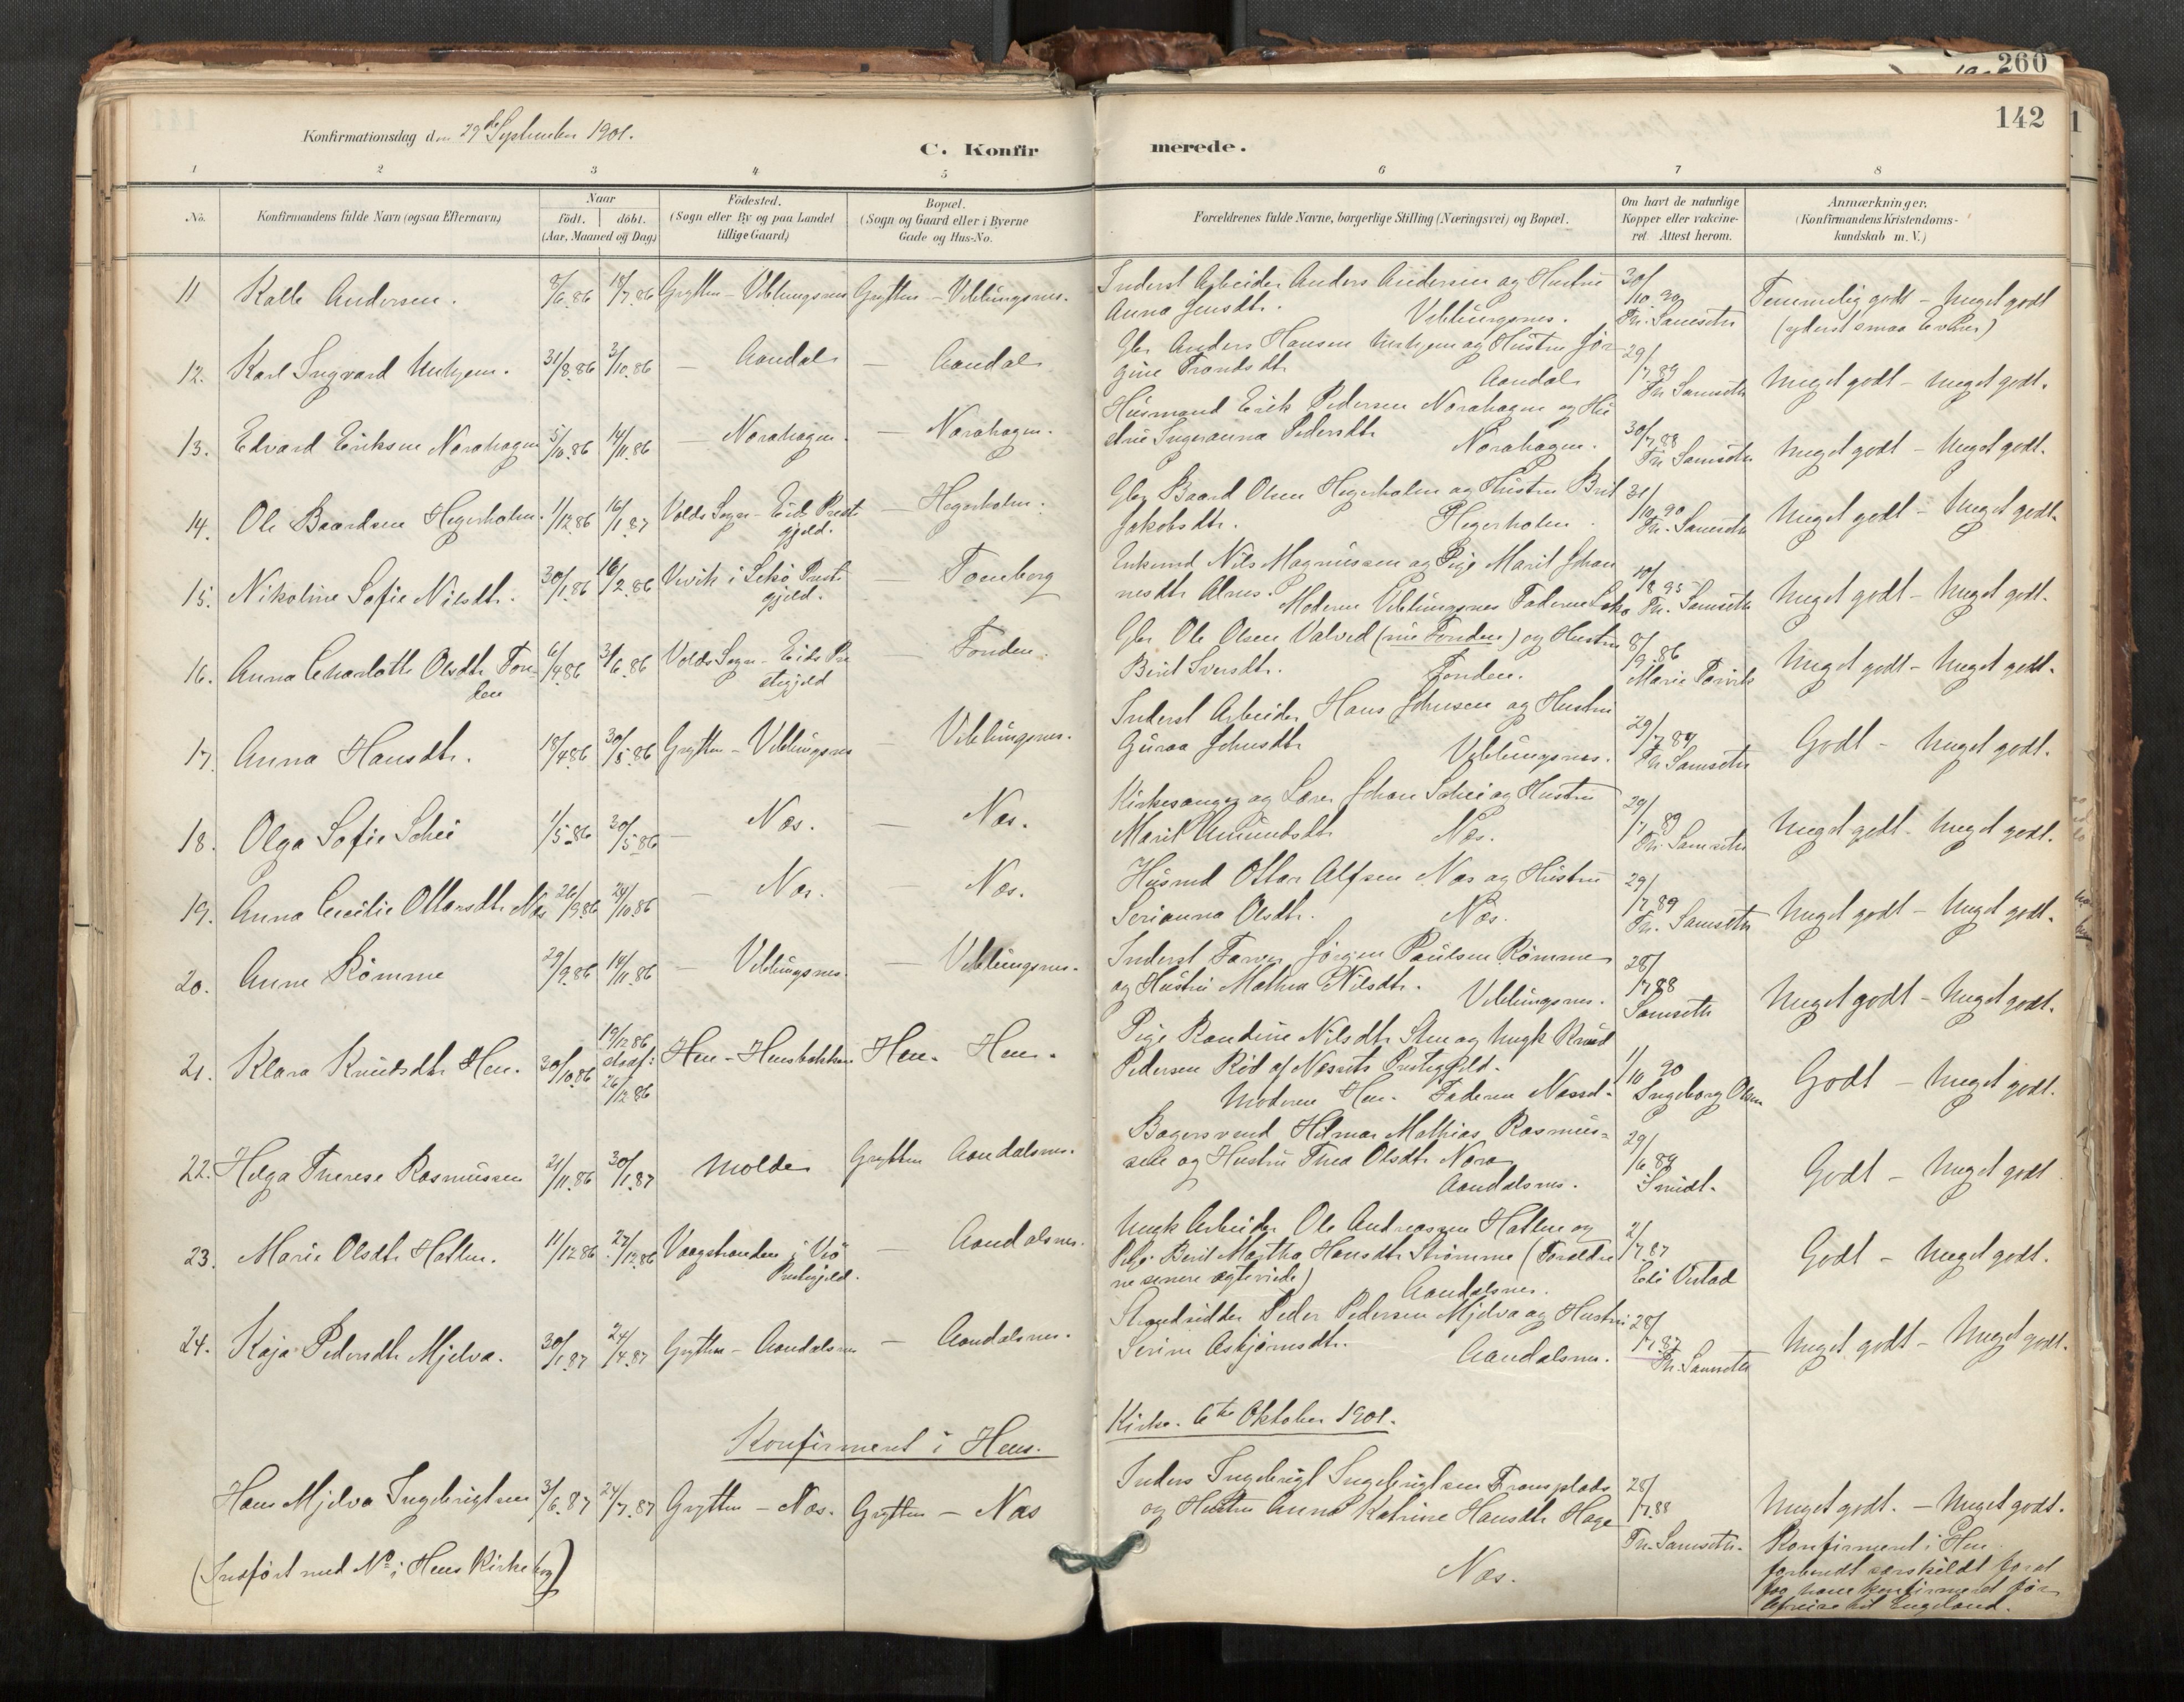 260
142
Konfirmationsdag den 29de September 1901.
C. Konfirmerede.
1 2 3 4 5 6 7 8
No. Konfirmandens fulde Navn (ogsaa Efternavn) Naar født. døbt. (Aar, Maaned og Dag) Fødested. (Sogn eller By og paa Landet tillige Gaard) Bopæl. (Sogn og Gaard eller i Byerne Gade og Hus-No. Forældrenes fulde Navne, borgerlige Stilling (Næringsvei) og Bopæl. Om havt de naturlige Kopper eller vakcineret. Attest herom. Anmærkninger. (Konfirmandens Kristendomskundskab m. V.)
11 Kalle Andersen. 8/6.86 18/7.86 Grytten - Veblungsnes Grytten - Veblungsnes.
Inderst Arbeider Anders Andersen og Hustru
Anna Jensdtr. Veblungsnes.
30/10.90 Th. Samseth
Temmelig godt - Meget godt
(yderst smaa Evner)
12. Karl Ingvard Unhjem. 31/8.86 3/10.86 — Aandal — Aandal
Gbr Anders Hansen Unhjem og Hustru Jør
gine Trondsdtr Aandal
29/7.89 Th. Samseth
Meget godt - Meget godt.
13. Edvard Eriksen Norahagen 5/10.86 14/11.86 — Norahagen. — Norahagen.
Husmand Erik Pedersen Norahagen og Hu
stru Ingeranna Pedersdtr Norahagen.
30/7.88 Th. Samseth
Meget godt - Meget godt.
14. Ole Baardsen Hegerholm. 1/12.86 16/1.87 Volds Sogn - Eids Preste
gjeld. — Hegerholm.
Gbr Baard Olsen Hegerholm og Hustru Brit
Jakobsdtr. Hegerholm.
31/10.90 Th. Samseth
Meget godt - Meget godt.
15. Nikoline Sofie Nilsdtr. 30/1.86 16/2.86 Vevik i Lekø Preste
gjeld. — Tomberg
Enkemd Nils Magnussen og Pige Marit Johan
nesdtr Alnes. Moderen Veblungsnes Faderen Lekø
10/8.95 Th. Samseth
Meget godt - Meget godt.
16. Anna Charlotte Olsdtr Fon
den 6/4.86 3/6.86 Volds Sogn - Eids Pre
stegjeld — Fonden.
Gbr Ole Olsen Valved (nu Fonden) og Hustru
Berit Iversdtr. Fonden.
8/9.86
Meget godt - Meget godt.
17. Anna Hansdtr. 18/4.86 30/5.86 Grytten - Veblungsnes — Veblungsnes.
Inderst Arbeider Hans Johnsen og Hustru
Guraa Johnsdtr Veblungsnes.
29/7.89 Th. Samseth
Godt - Meget godt.
18. Olga Sofie Schei 1/5.86 30/5.86 — Næs. — Næs.
Kirkesanger og Lærer Johan Schei og Hustru
Marit Amundsdtr Næs.
29/7.89 Th. Samseth
Meget godt - Meget godt.
19. Anna Cecilie Ottarsdtr Næs 26/9.86 24/10.86 — Næs. — Næs.
Husmd Ottar Alfsen Næs og Hustru
Serianna Olsdtr. Næs.
29/7.89 Th. Samseth
Meget godt - Meget godt.
20. Anne Rømme 29/9.86 14/11.86 — Veblungsnes. — Veblungsnes.
Inderst Farver Jørgen Paulsen Rømme
og Hustru Mathea Nilsdtr. Veblungsnes.
28/7.88 Samseth
Meget godt - Meget godt.
21. Klara Knudsdtr Hen. 30/10.86 19/12.86 26/12.86 Hen - Hensbakken Hen. Hen.
Pige Randine Nilsdtr Hen og Ungk Knud
Pedersen Rød af Nessets Prestegjeld.
Moderen Hen. Faderen Nesset.
1/10 90 Ingeborg Olsen
Godt - Meget godt.
22. Helga Therese Rasmussen 21/11.86 30/1.87 Molde Grytten Aandalsnes.
Bagersvend Hilmar Mathias Rasmus-
sen og Hustru Thea Olsdtr Nora
Aandalsnes.
29/6.89 Smidt.
Godt - Meget godt
23. Marie Olsdtr Hatlen. 11/12.86 27/12.86 Vaagstranden i Veø
Prestegjeld. — Aandalsnes.
Ungk Arbeider Ole Andreassen Hatlen og
Pige Berit Martha Hansdtr Strømme (Forældre
ne senere ægteviede) Aandalsnes.
2/7.87
Godt - Meget godt.
24. Kaja Pedersdtr Mjelva. 30/1.87 24/4.87 Grytten - Aandalsnes — Aandalsnes.
Strandsidder Peder Pedersen Mjelva og Hustru
Serine Asbjørnsdtr. Aandalsnes.
28/7.87 Th. Samseth
Meget godt - Meget godt.
Konfirmeret i Hens. Kirke. 6te Oktober 1901.
Hans Mjelva Ingebrigtsen 3/6.87 24/7.87 Grytten - Næs. Grytten - Næs
Inders Ingebrigt Ingebrigtsen
og Hustru Anna Katrine Hansdtr Hage
Næs.
28/7.88
Th. Samseth.
Meget godt. - Meget godt.
(Indført med No i Hens Kirkebog)
Konfirmeret i Hen
særskildt
konfirmeret før
Afreise til Engeland.